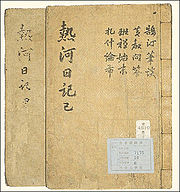 鵠汀筆談
黃教問答
班禪始末
札什倫布
熱河日記 己
熱河日記